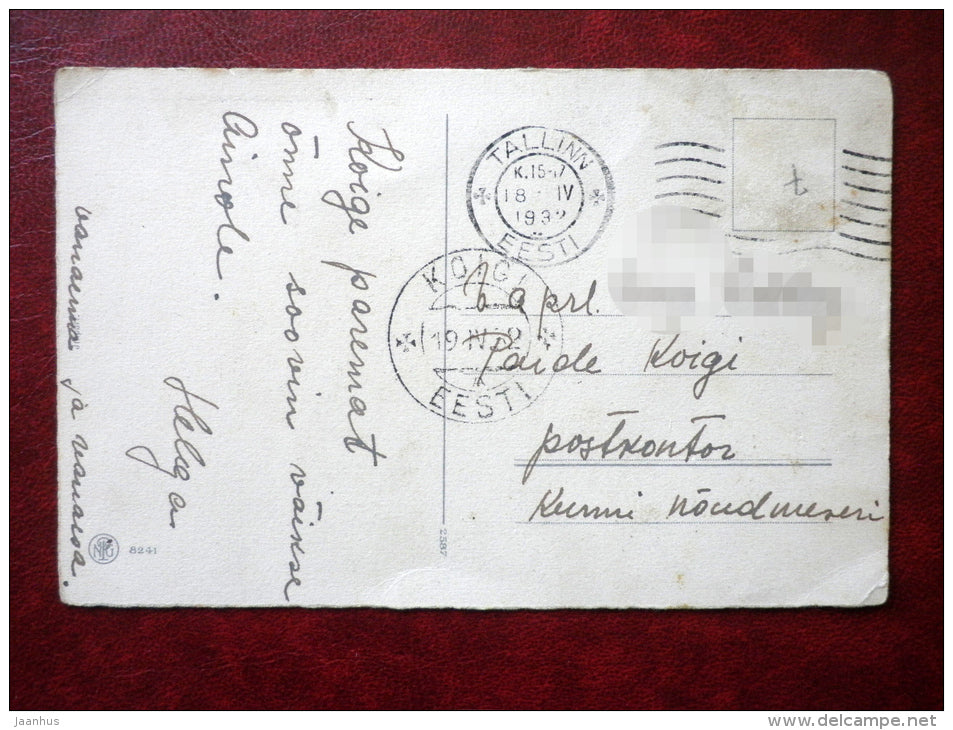 Kõige paremat
õnne soovin väikse
Aimole.
Helga.
vanaema ja vanaisa.
8241
2587
TALLINN
K.15-17
18 IV
1932
EESTI
KOIGI
19 IV 32
EESTI
prl.
Paide Koigi
postkontor
Nõudmiseni
Jaanhus
www.delcampe.net